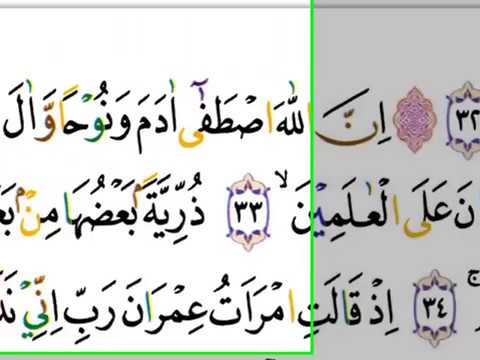 ٣٢ اِنَّ اللّٰهَ اصْطَفٰٓى اٰدَمَ وَنُوْحًا وَّاٰلَ
نَ عَلَى الْعٰلَمِيْنَۙ ٣٣ ذُرِّيَّةًۢ بَعْضُهَا مِنْۢ
٣٤ اِذْ قَالَتِ امْرَاَتُ عِمْرَانَ رَبِّ اِنِّيْ